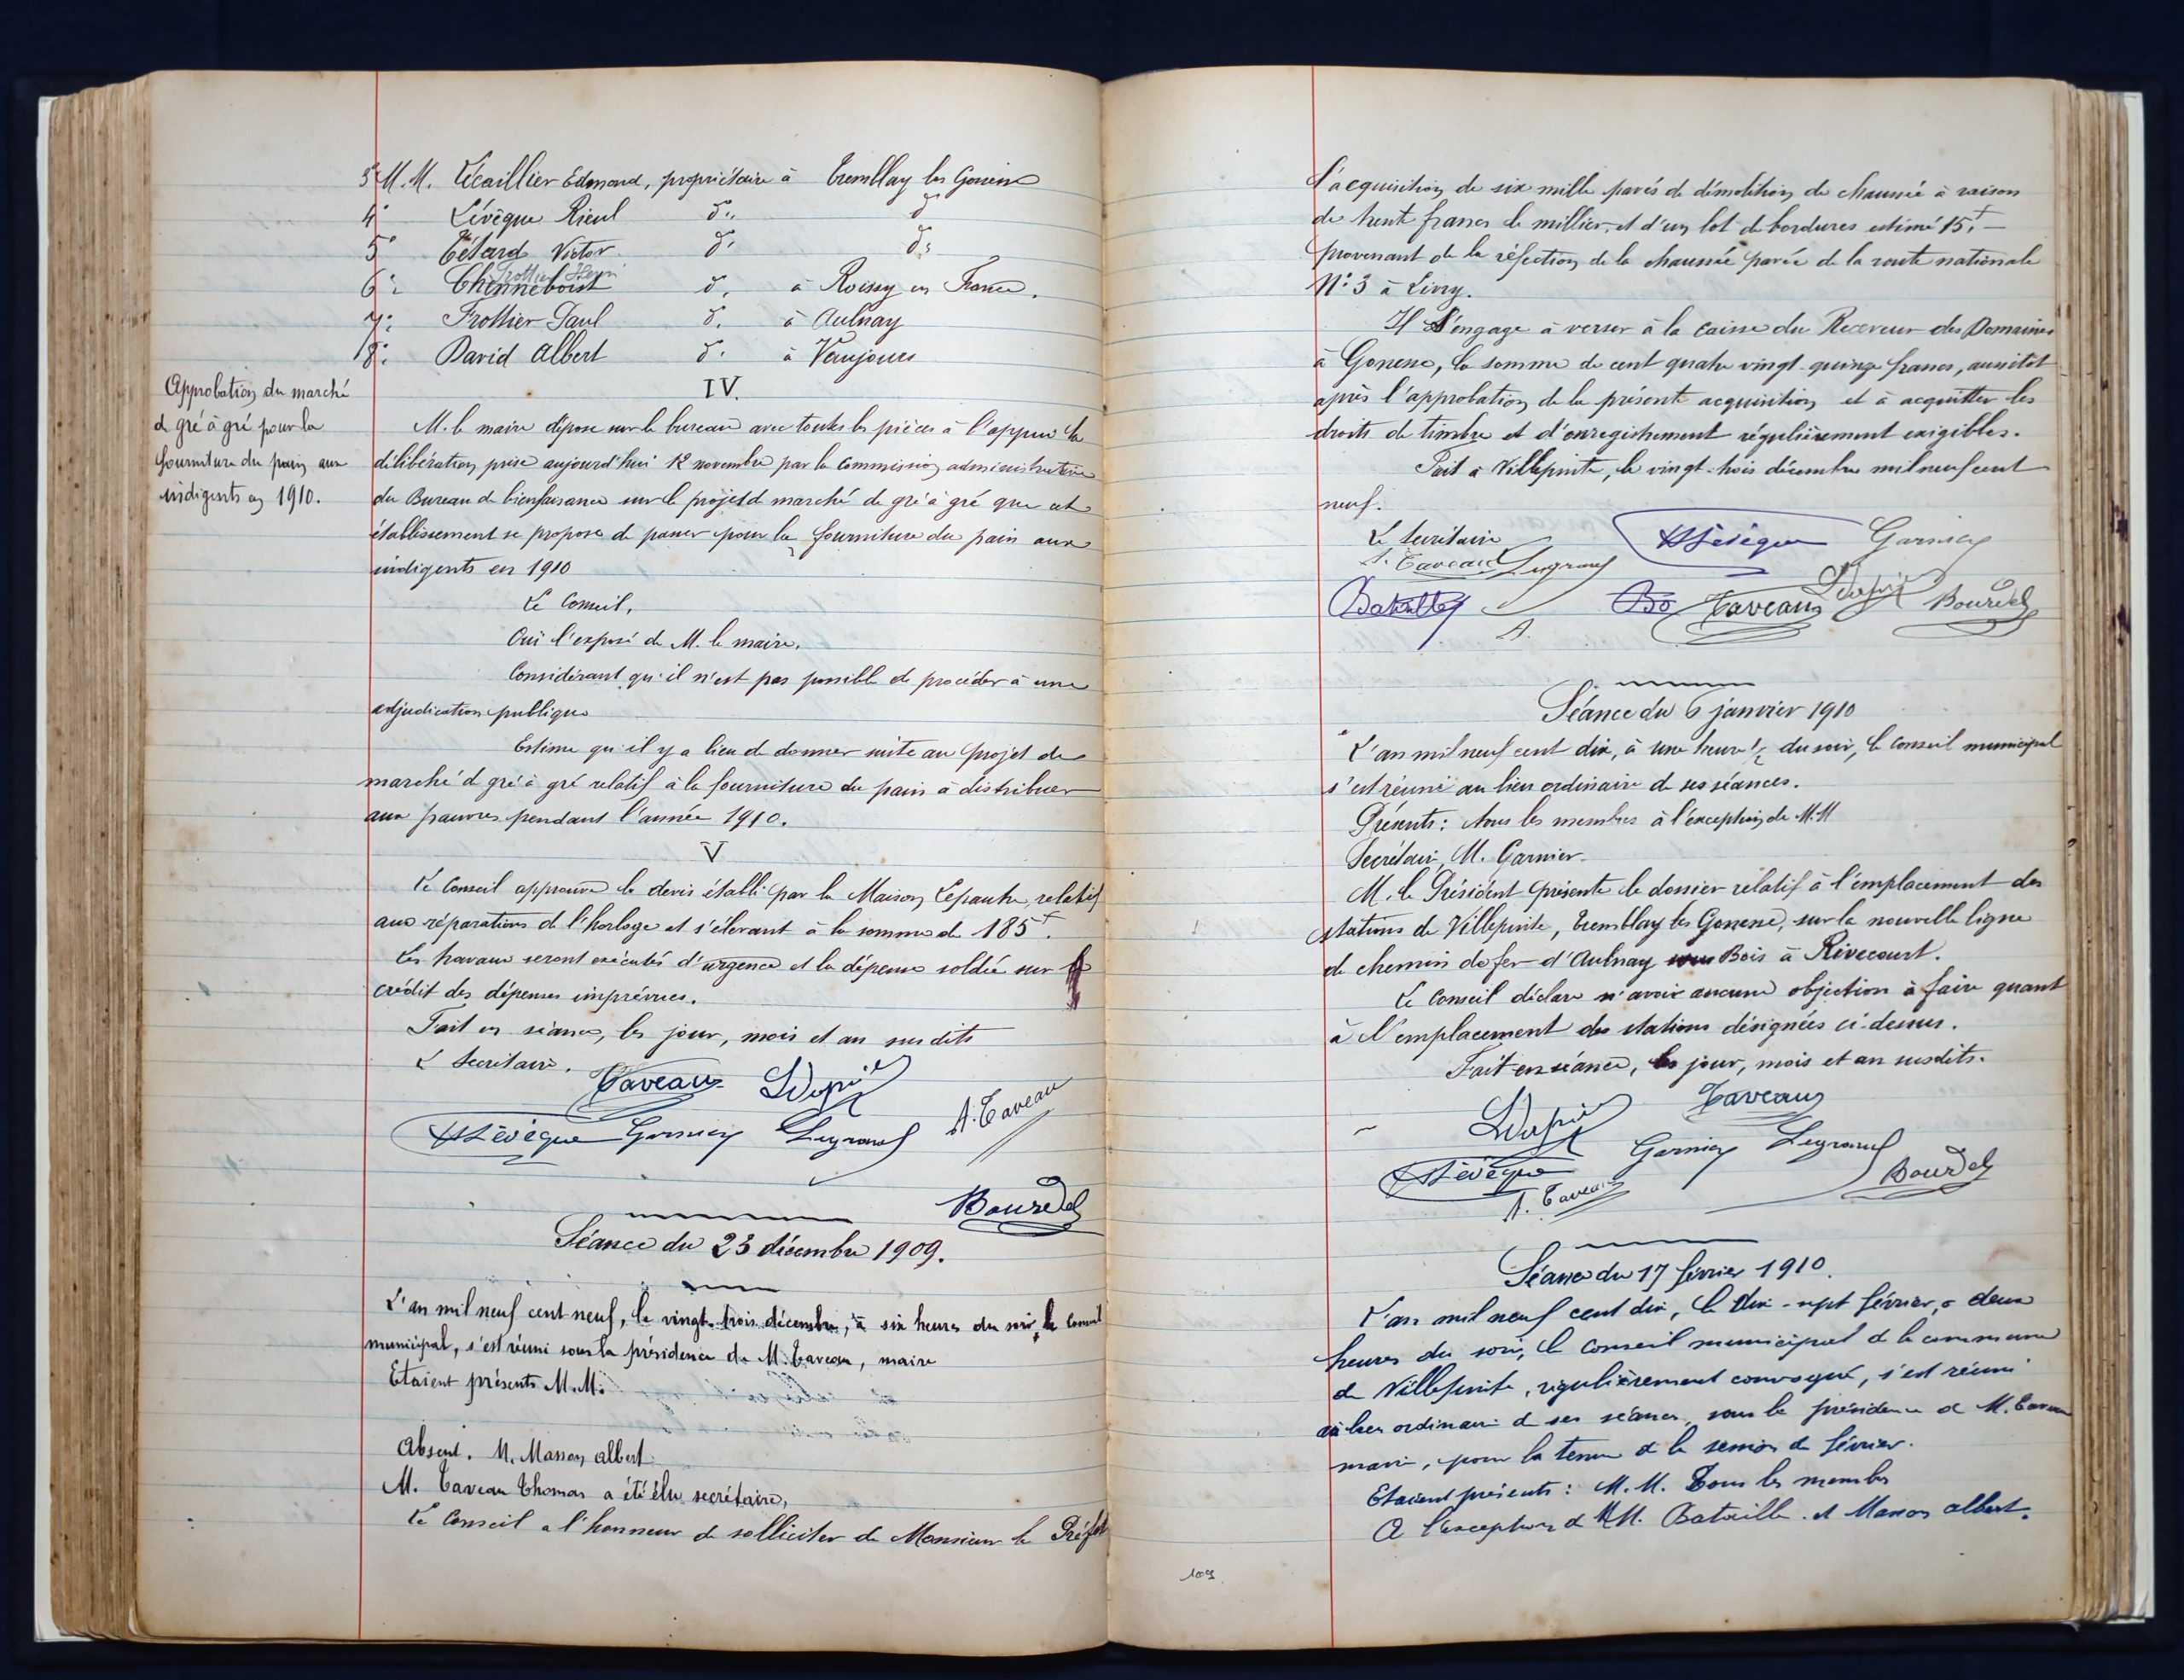 3° M.M. Écaillier Edmond, propriétaire à Tremblay les Gonesse
4° Lévêque Rieul d° d°
5° Tétard Victor d° d°
6° Chenneboist d° à Roissy en France.
Trottier Henri
7° Trottier Paul d° à Aulnay
8° David Albert d° à Vaujours
IV.
Approbation du marché
de gré à gré pour la
fourniture du pain aux
indigents en 1910.
M. le maire dépose sur le bureau avec toutes les pièces à l'appui la
délibération prise aujourd'hui 12 novembre par la Commission administrative
du Bureau de bienfaisance sur le projet de marché de gré à gré que cet
établissement se propose de passer pour la fourniture du pain aux
indigents en 1910
Le Conseil,
Ouï l'exposé de M. le maire,
Considérant qu'il n'est pas possible de procéder à une
adjudication publique
Estime qu'il y a lieu de donner suite au projet de
marché de gré à gré relatif à la fourniture du pain à distribuer
aux pauvres pendant l'année 1910.
V
Le Conseil approuve le devis établi par la Maison Lepaute, relatif
aux réparations de l'horloge et s'élevant à la somme de 185f.
Les travaux seront exécutés d'urgence et la dépense soldée sur le
crédit des dépenses imprévues.
Fait en séance, les jour, mois et an susdits
Le Secrétaire.
Taveau LDupié
HLévêque Garnier Legrand A. Taveau
Bourdel
Séance du 23 décembre 1909.
L'an mil neuf cent neuf, le vingt-trois décembre, à six heures du soir, le Conseil
municipal, s'est réuni sous la présidence de M. Taveau, maire
Etaient présents M.M.
Absent. M. Masson Albert
M. Taveau Thomas a été élu secrétaire,
Le Conseil a l'honneur de solliciter de Monsieur le Préfet
l'acquisition de six mille pavés de démolition de chaussée à raison
de trente francs le millier, et d'un lot de bordures estimé 15f.—
provenant de la réfection de la chaussée pavée de la route nationale
N° 3 à Livry.
Il s'engage à verser à la caisse du Receveur des Domaines
à Gonesse, la somme de cent quatre vingt-quinze francs, aussitôt
après l'approbation de la présente acquisition et à acquitter les
droits de timbre et d'enregistrement régulièrement exigibles.
Fait à Villepinte, le vingt-trois décembre mil neuf cent
neuf.
Le Secrétaire HLévêque Garnier
A. Taveau Legrand
Bataille Bo Taveau LDupié Bourdel
A.
Séance du 6 janvier 1910
L'an mil neuf cent dix, à une heure 1/2 du soir, le Conseil municipal
s'est réuni au lieu ordinaire de ses séances.
Présents: tous les membres à l'exception de M.M
Secrétaire, M. Garnier.
M. le Président présente le dossier relatif à l'emplacement des
stations de Villepinte, Tremblay les Gonesse, sur la nouvelle ligne
de chemin de fer d'Aulnay sous Bois à Rivecourt.
Le Conseil déclare n'avoir aucune objection à faire quant
à l'emplacement des stations désignées ci-dessus.
Fait en séance, les jour, mois et an susdits.
LDupié Taveau
HLévêque Garnier Legrand
A. Taveau Bourdel
Séance du 17 février 1910.
L'an mil neuf cent dix, le dix-sept février, à deux
heures du soir, le Conseil municipal de la commune
de Villepinte, régulièrement convoqué, s'est réuni
au lieu ordinaire de ses séances, sous la présidence de M. Taveau
maire, pour la tenue de la session de février.
Etaient présents: M.M. Tous les membres
A l'exception de MM. Bataille et Masson Albert.
109